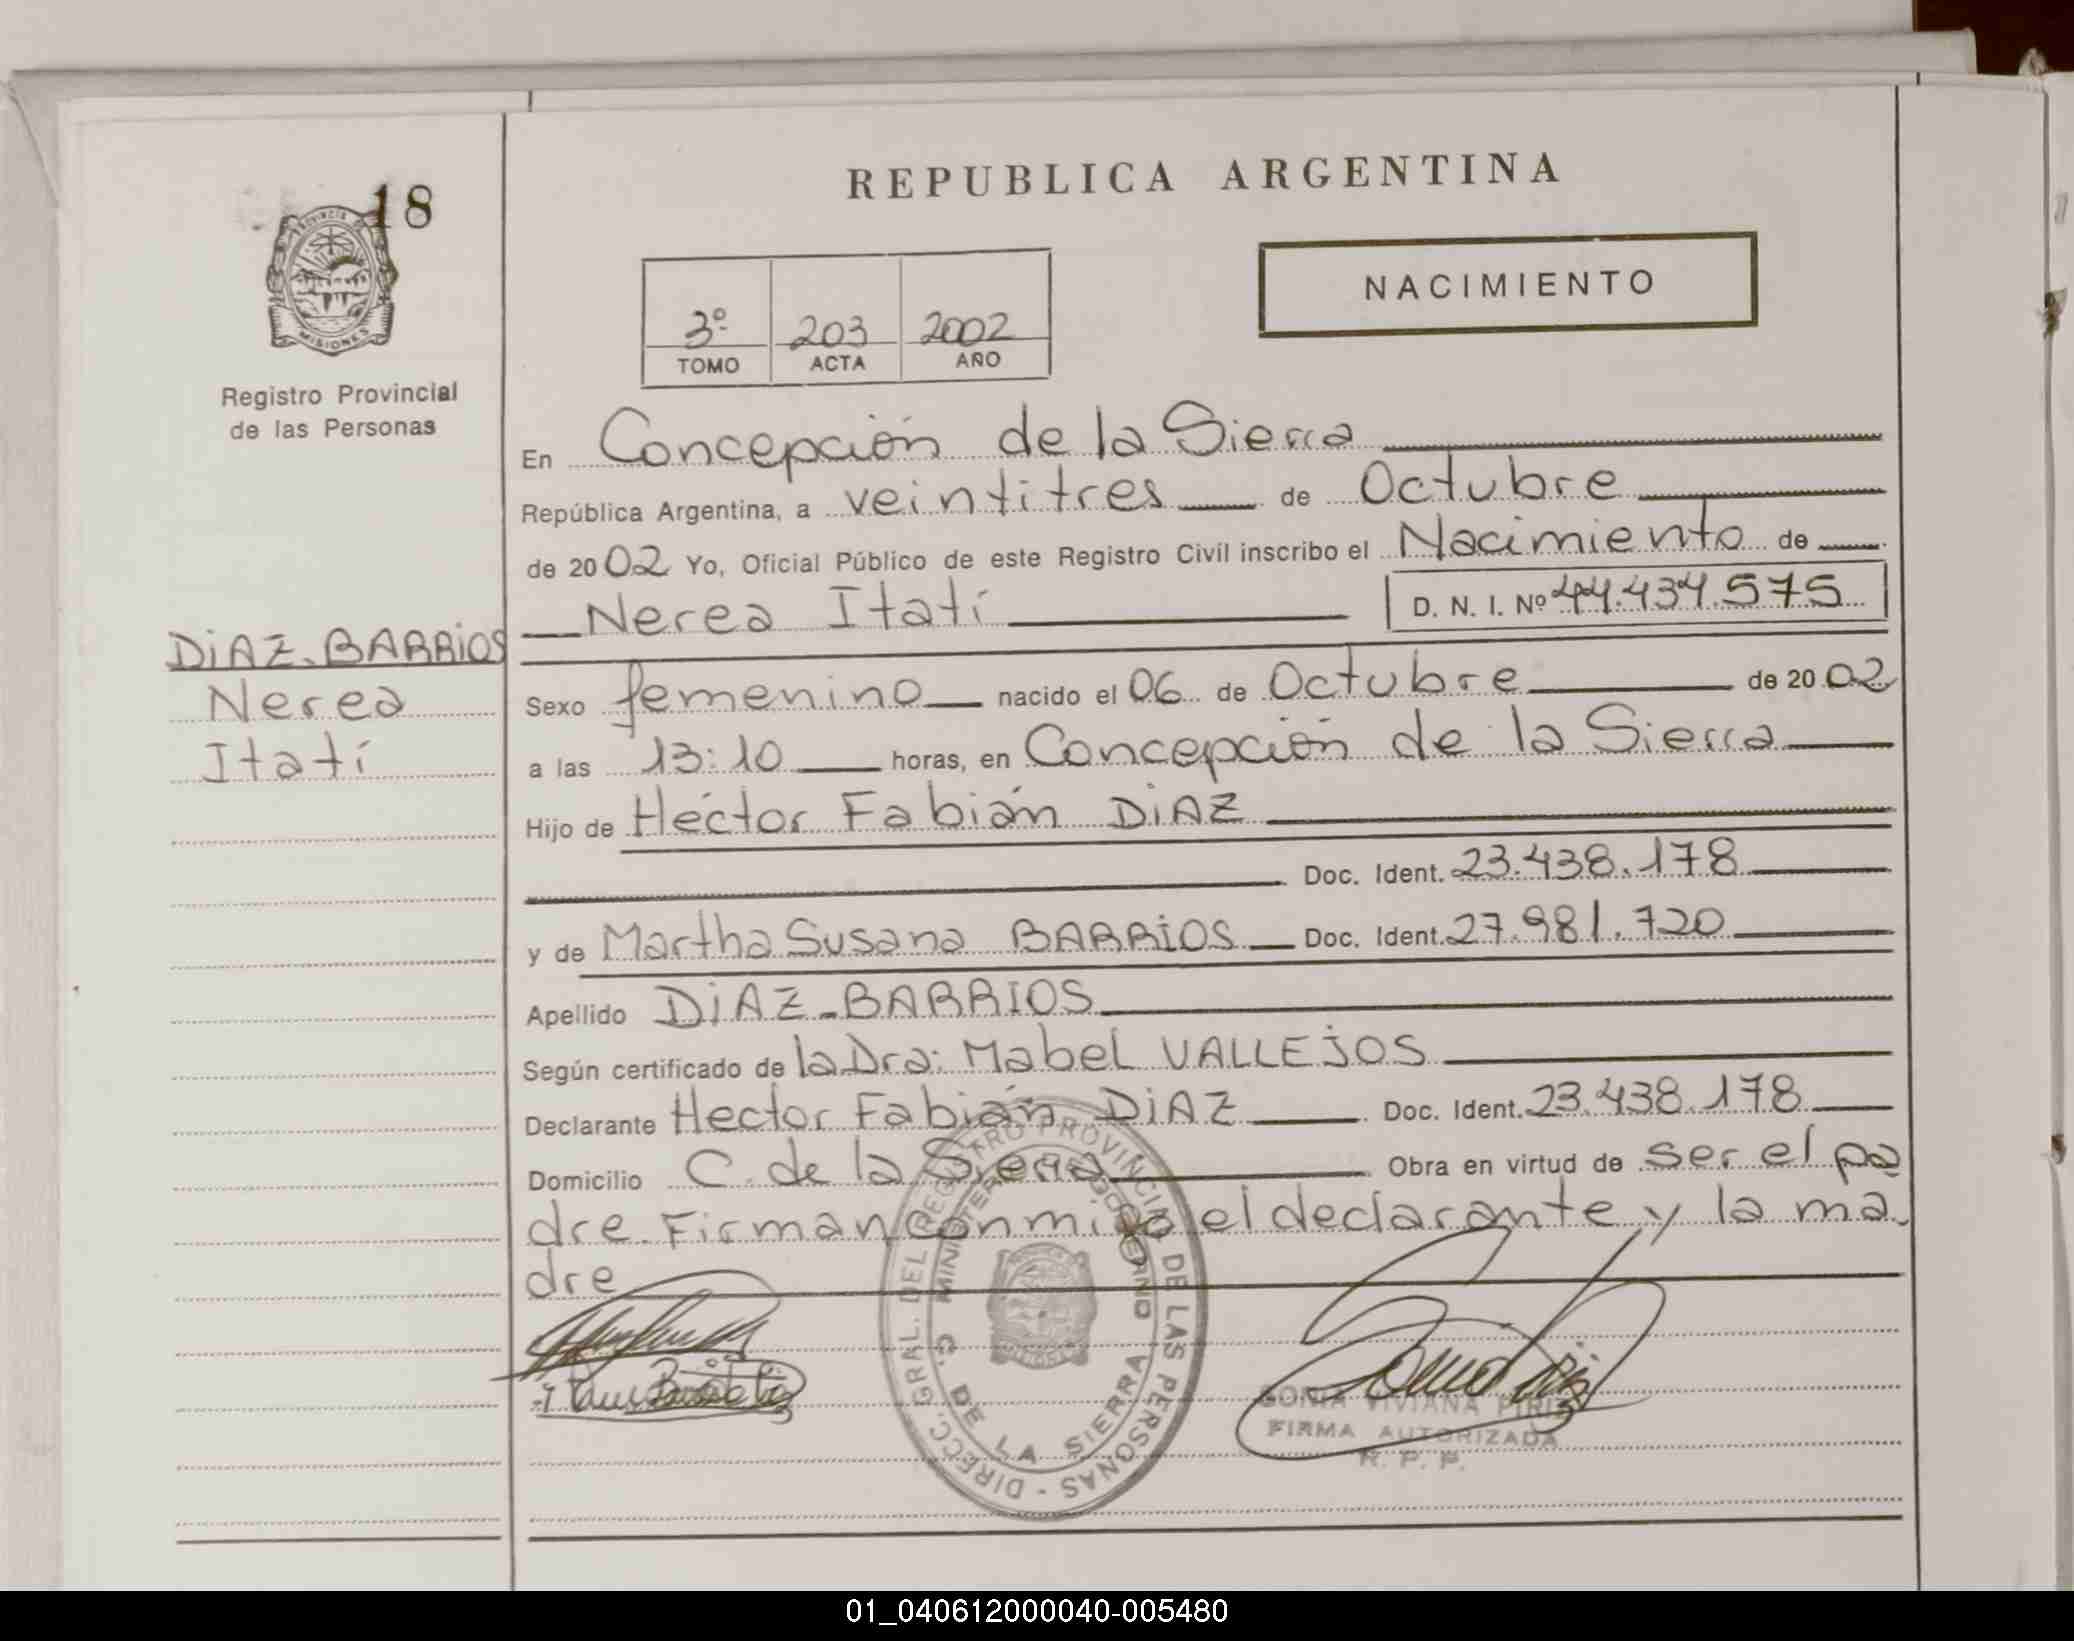 18
PROVINCIA DE
MISIONES
Registro Provincial
de las Personas
DiAZ-BARRiOS
Nerea
Itatí
REPUBLICA ARGENTINA
NACIMIENTO
3º 203 2002
TOMO ACTA AÑO
En Concepción de la Sierra
República Argentina, a veintitres de Octubre
de 2002 Yo, Oficial Público de este Registro Civil inscribo el Nacimiento de
Nerea Itatí D. N. I. Nº 44.434.575
Sexo femenino nacido el 06 de Octubre de 2002
a las 13:10 horas, en Concepción de la Sierra
Hijo de Héctor Fabián DiAZ
Doc. Ident. 23.438.178
y de Martha Susana BARRiOS Doc. Ident. 27.981.720
Apellido DiAZ-BARRIOS
Según certificado de la Dra: Mabel VALLEjOS
Declarante Hector Fabián DiAZ Doc. Ident. 23.438.178
Domicilio C. de la Sierra Obra en virtud de ser el pa
dre. Firman conmigo el declarante y la ma-
dre
DIRECC. GRAL. DEL REGISTRO PROVINCIAL DE LAS PERSONAS -
MINISTERIO DE GOBIERNO
C. DE LA SIERRA
SONIA VIVIANA PIRIZ
FIRMA AUTORIZADA
R. P. P.
01_040612000040-005480